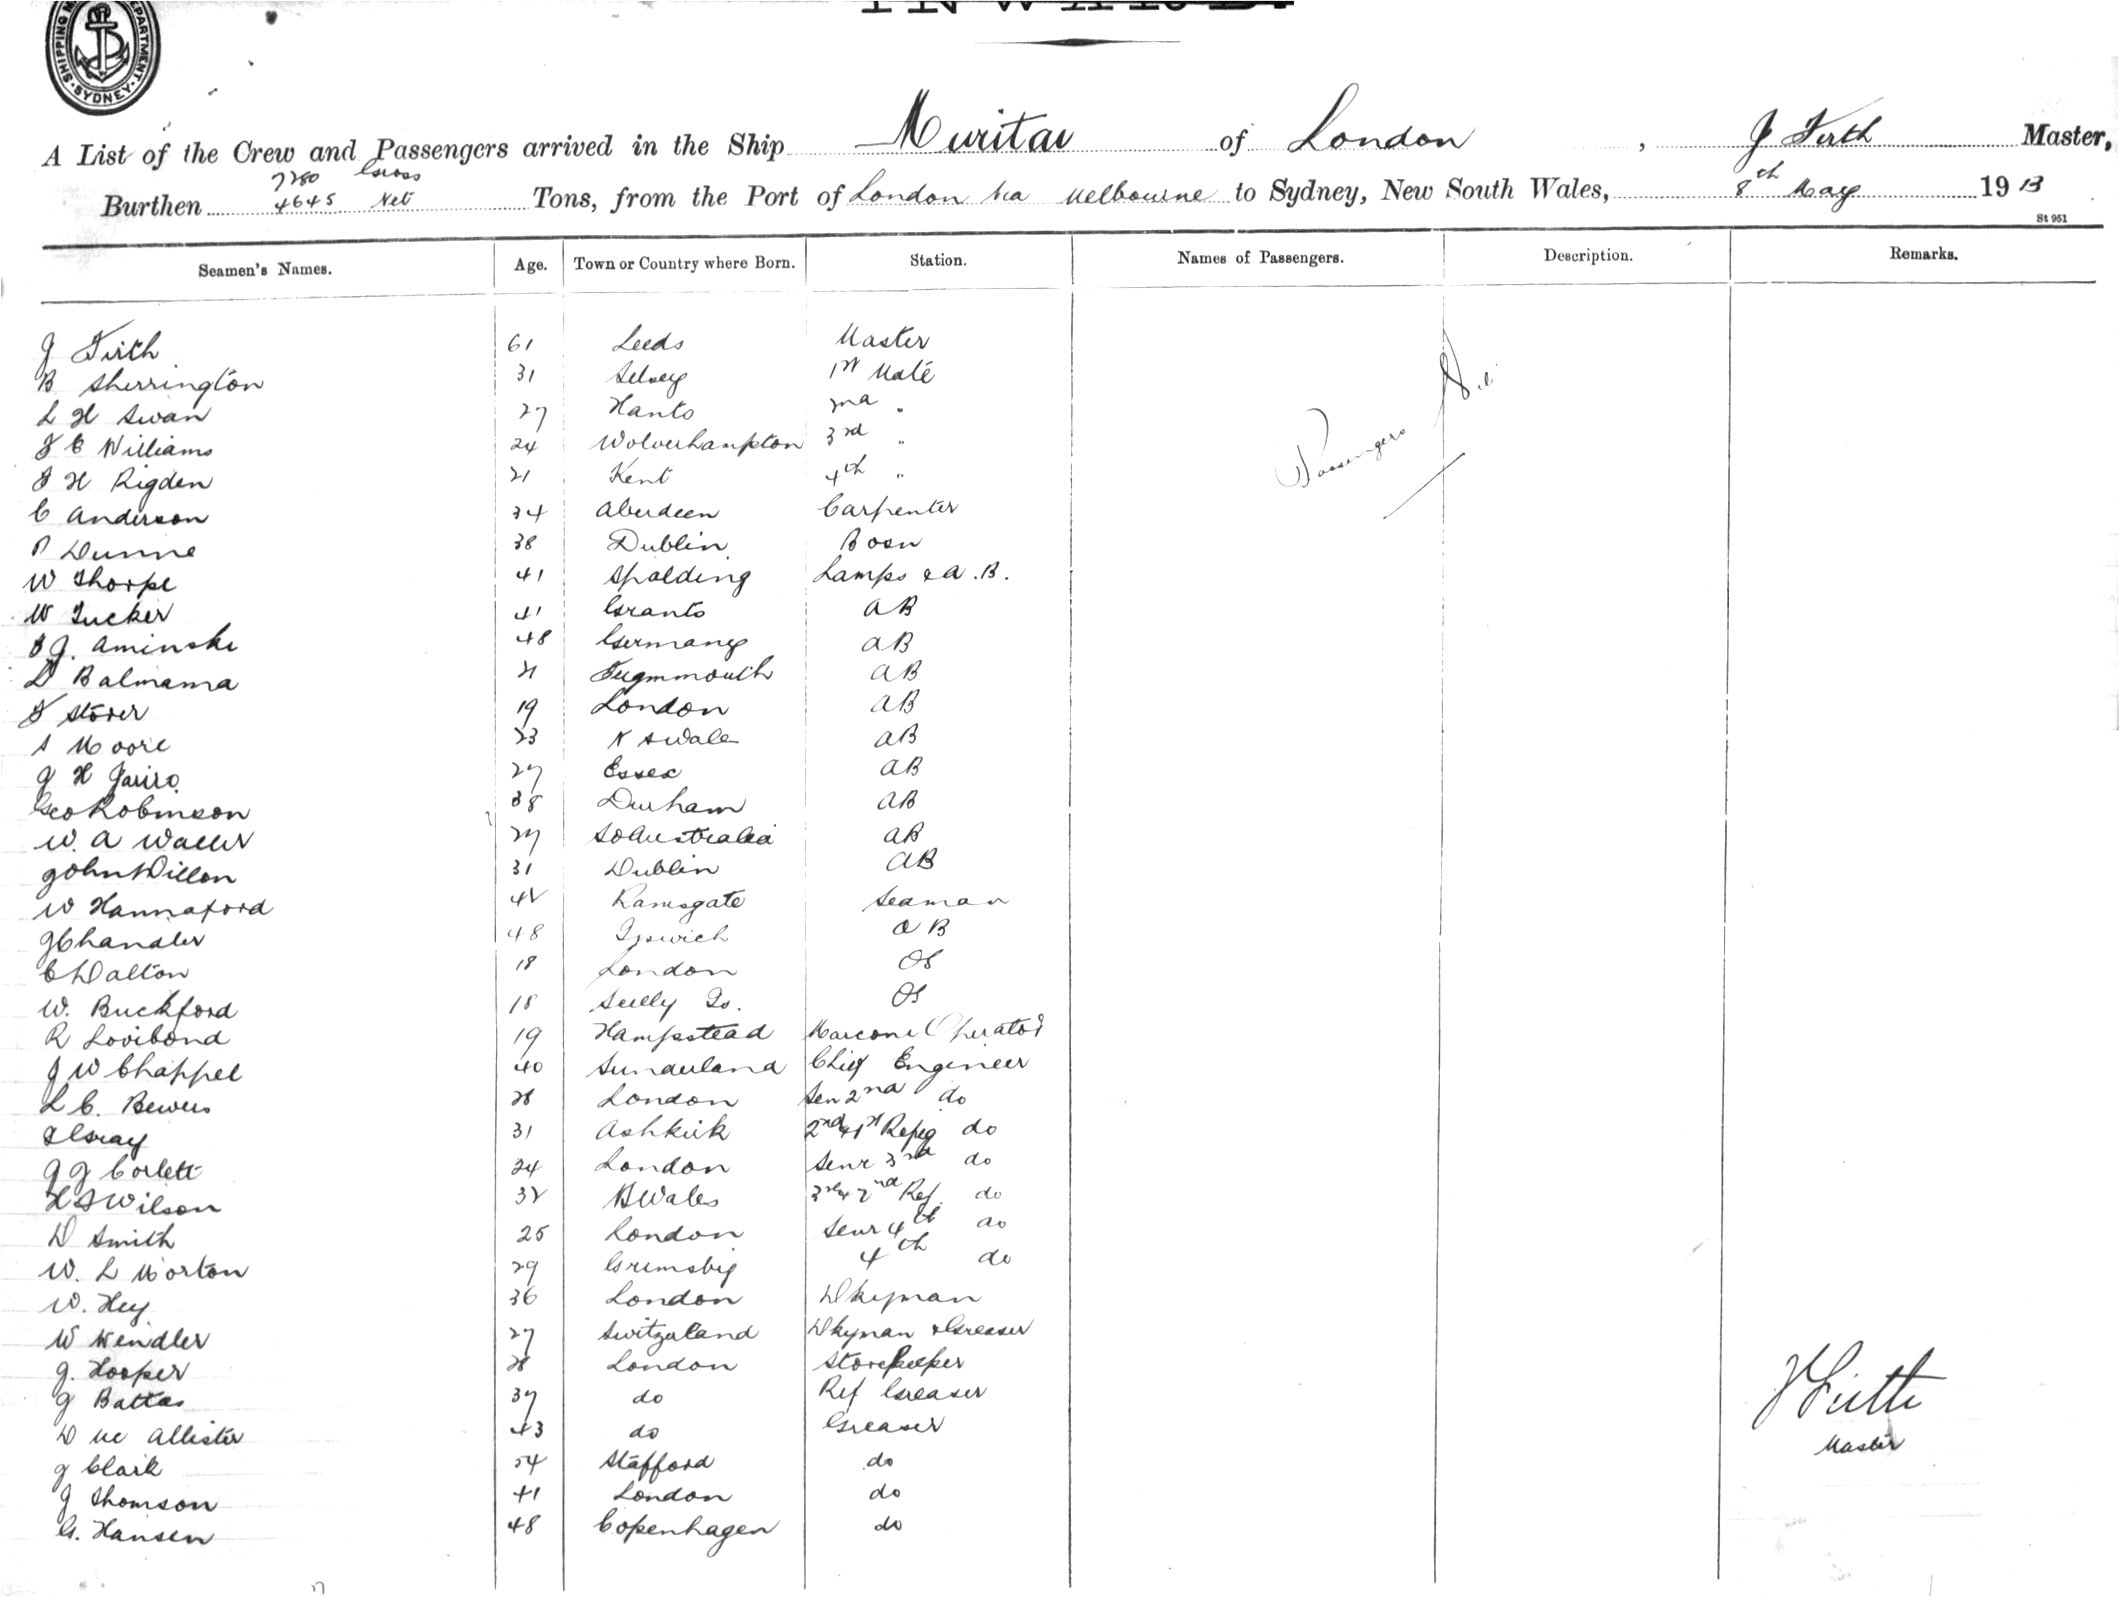 SHIPPING DEPARTMENT SYDNEY
INWARD.
A List of the Crew and Passengers arrived in the Ship Muritai of London, J Firth Master,
7280 Gross
Burthen 4645 Net Tons, from the Port of London via Melbourne to Sydney, New South Wales, 8th May 1913
St 951
Seamen's Names. Age. Town or Country where Born. Station. Names of Passengers. Description. Remarks.
J Firth 61 Leeds Master
B Sherrington 31 Selsey 1st Mate
L H Swan 27 Hants 2nd "
F C Williams 24 Wolverhampton 3rd "
F H Rigden 21 Kent 4th "
Passengers Nil
C Anderson 34 Aberdeen Carpenter
P Dunne 38 Dublin Bosn
W Thorpe 41 Spalding Lamps & A.B.
W Tucker 41 Grants AB
J. Aminski 48 Germany AB
D Balmama 21 AB
F Storer 19 London AB
S Moore 23 N S Wale AB
J H 27 Essex AB
Geo Robinson 38 Durham AB
W. A Waller 27 So Australia AB
John Dillon 31 Dublin AB
W Hannaford 42 Ramsgate Seaman
J Chandler 48 Ipswich AB
C Dalton 18 London OS
W. Buckford 18 Scilly Is. OS
R Lovibond 19 Hampstead Marconi Operator
J W Chappel 40 Sunderland Chief Engineer
L C. Bewers 28 London Sen 2nd do
Gray 31 Ashkirk 2nd & 1st Refrig do
J J Corlett 24 London Senr 3rd do
H S Wilson 32 Wales 3rd & 2nd Ref. do
D Smith 25 London Senr 4th do
W. L Morton 29 Grimsby 4th do
W. Hey 36 London Dkyman
W Wendler 27 Switzerland Dkyman & Greaser
J. Hooper 28 London Storekeeper
J Battas 37 do Ref Greaser
D Mc Allister 43 do Greaser
J Clark 54 Stafford do
J Thomson 41 London do
G. Hansen 48 Copenhagen do
J Firth
Master